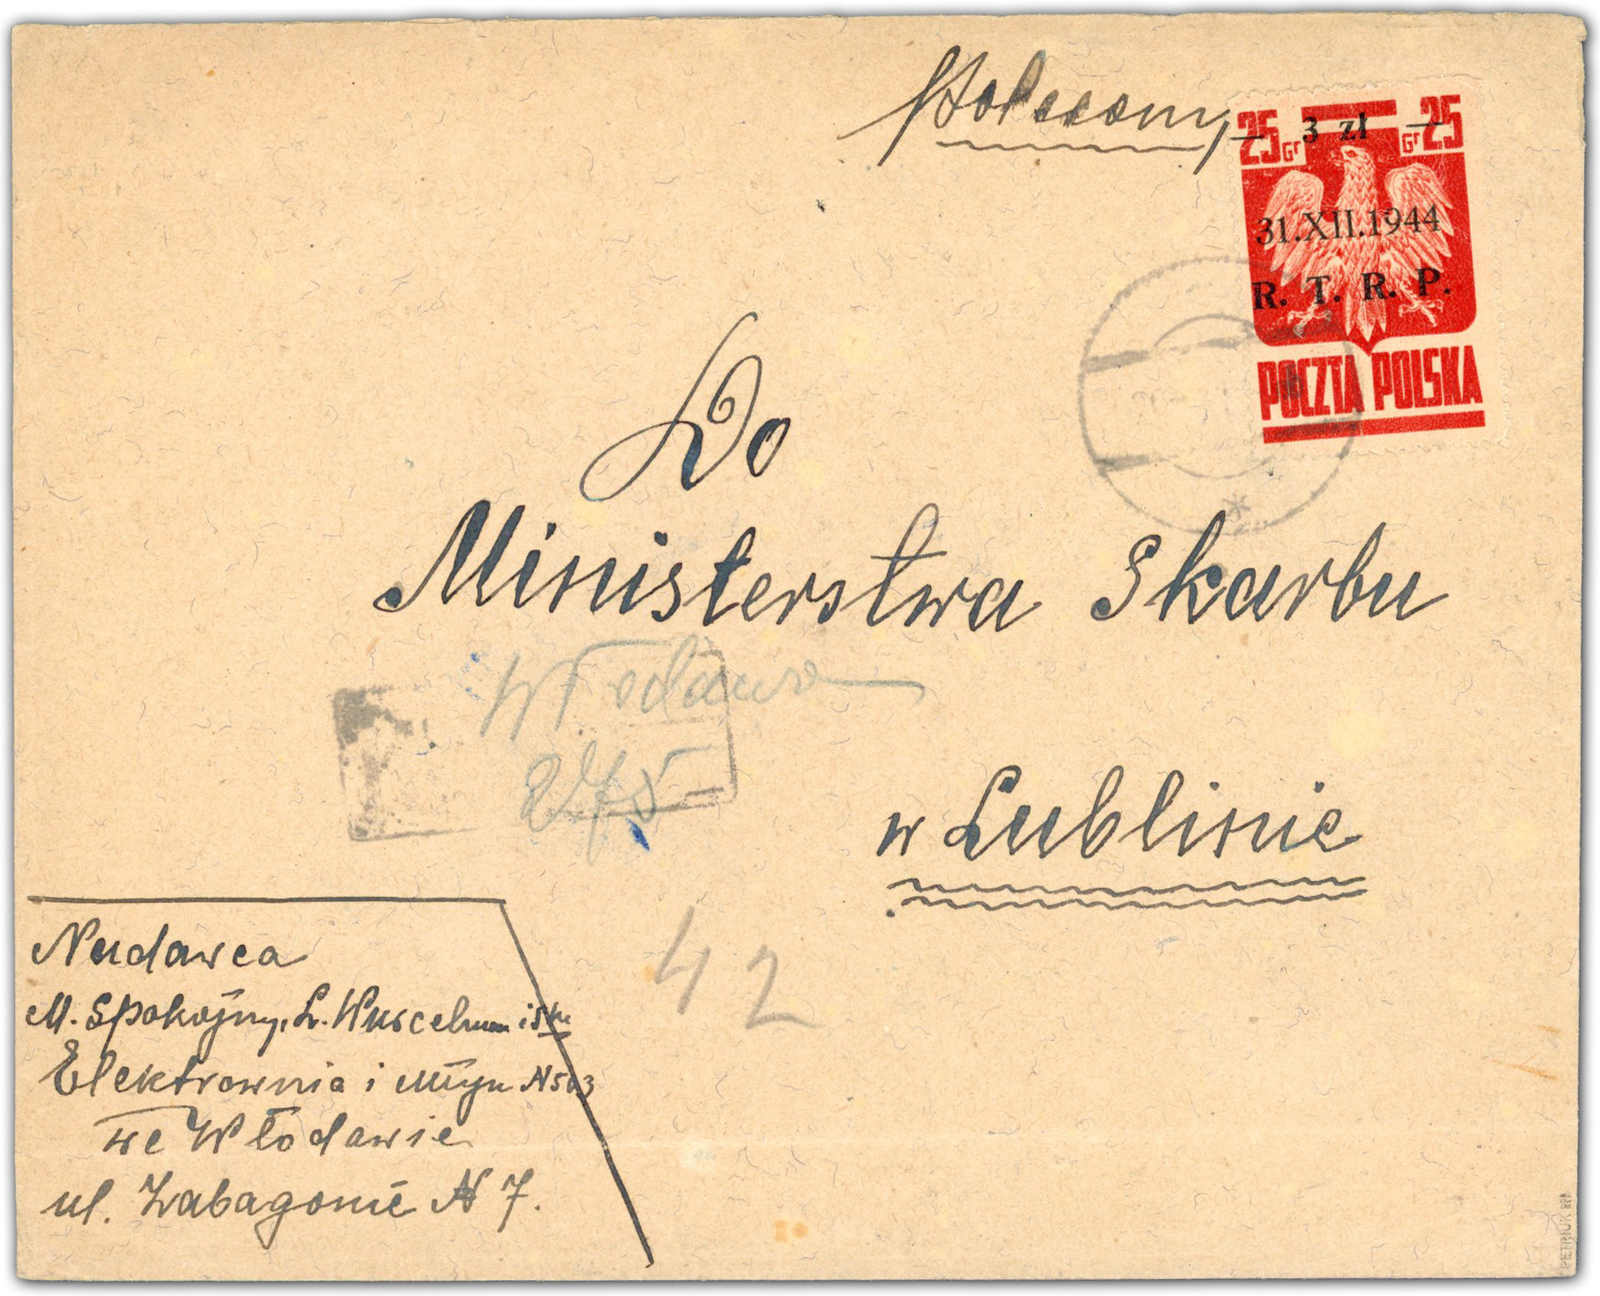 Polecony
25 Gr — 3 zł — Gr 25
31.XII.1944
R. T. R. P.
POCZTA POLSKA
Do
Ministerstwa Skarbu
Włodawa
275
w Lublinie
42
Nadawca
M. Spokojny, L.
Elektrownia i Młyn
we Włodawie
ul. Zabagonie N 7.